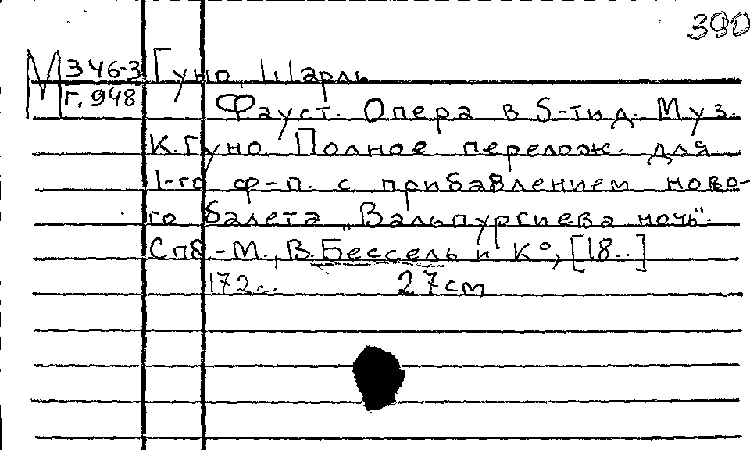 390
М З46-3 Гуно, Шарль
Г. 948 Фауст. Опера в 5-ти д. Муз.
К. Гуно. Полное перелож. для
1-го ф-п. с прибавлением ново-
го балета „Вальпургиева ночь".
Спб.-М., В. Бессель и К°, [18..]
172 с. 27 cm